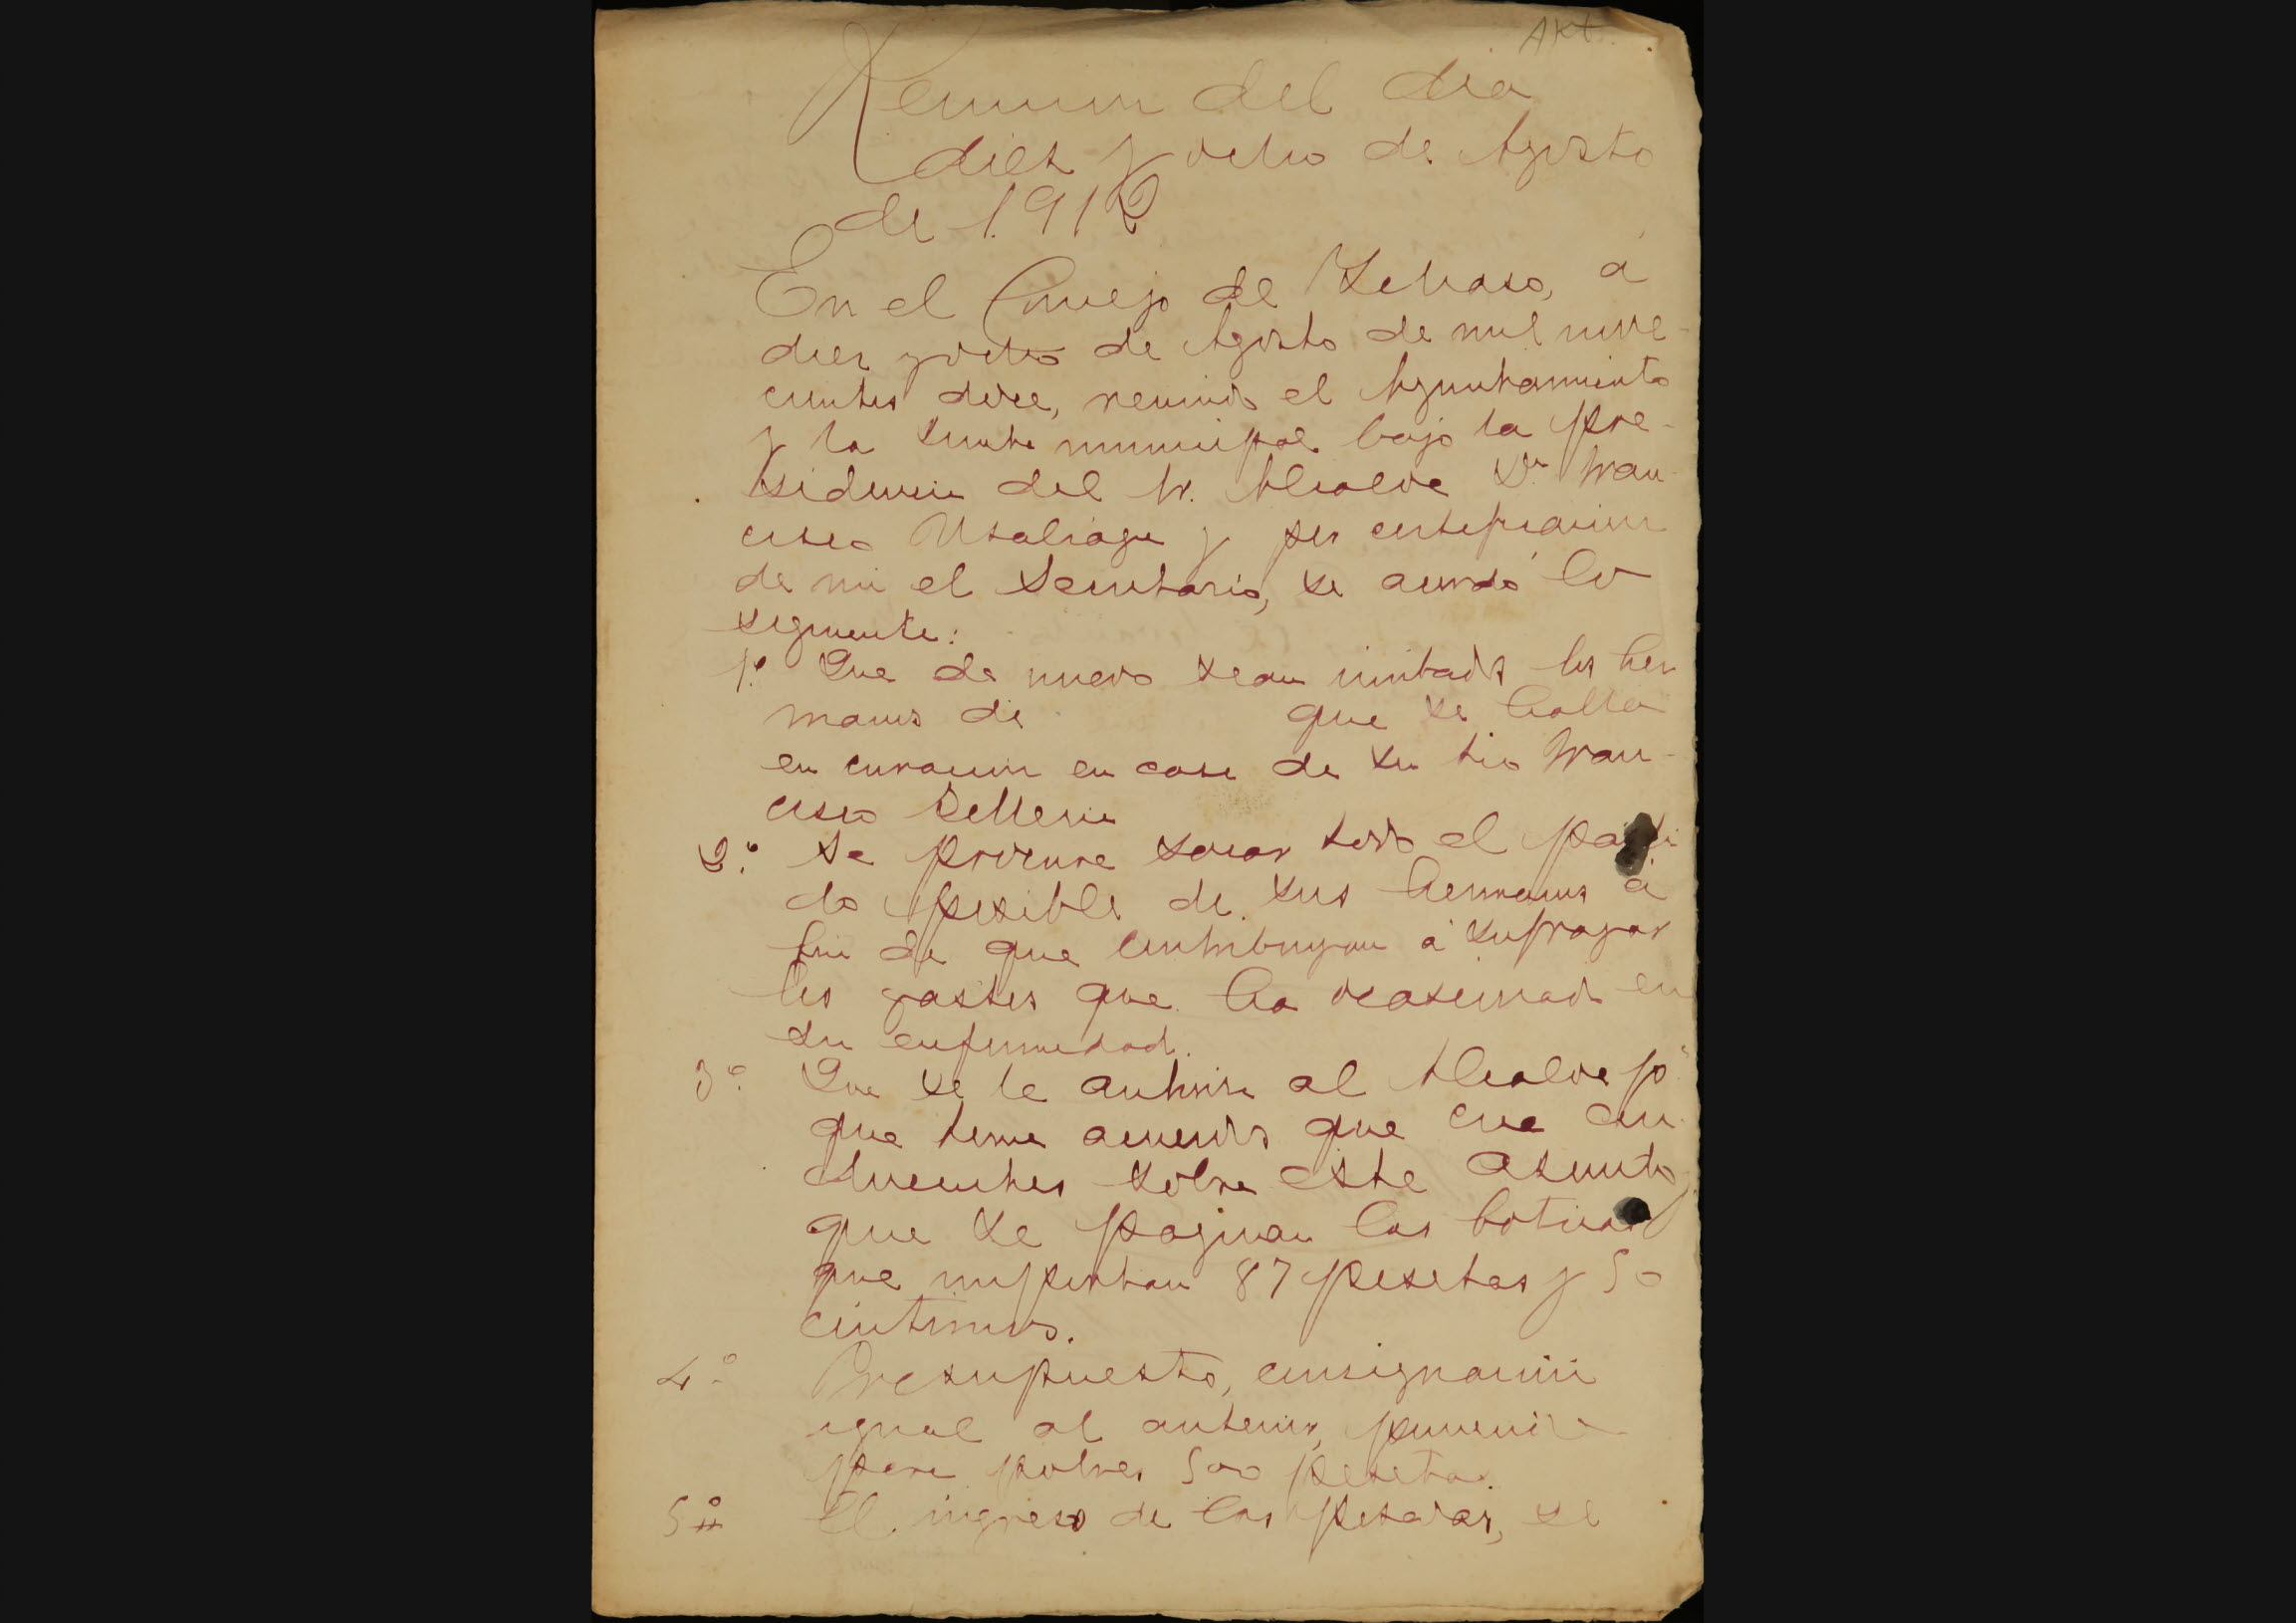 AKt.
Reunion del dia
diez y ocho de Agosto
de 1912
En el Concejo de Lehaso, á
diez y ocho de Agosto de mil nove-
cientos doce, reunido el Ayuntamiento
y la Junta municipal bajo la pre-
sidencia del Sr. Alcalde Dn Fran-
cisco y por certificacion
de mi el Secretario, se acordó lo
siguiente:
1º Que de nuevo sean invitados los her
manos de que se halla
en curacion en casa de su tio Fran-
cisco
2º Se procure sacar todo el parti
do posible de sus hermanos á
fin de que contribuyan á sufragar
los gastos que ha ocasionado en
su enfermedad.
3º Que se le autorice al Alcalde pª
que tome acuerdos que crea con-
ducentes sobre este asunto,
que se paguen las boticas
que importan 87 pesetas y 50
centimos.
4º Presupuesto, consignación
igual al anterior,
para pobres 500 pesetas.
5º El ingreso de las pesadas, se